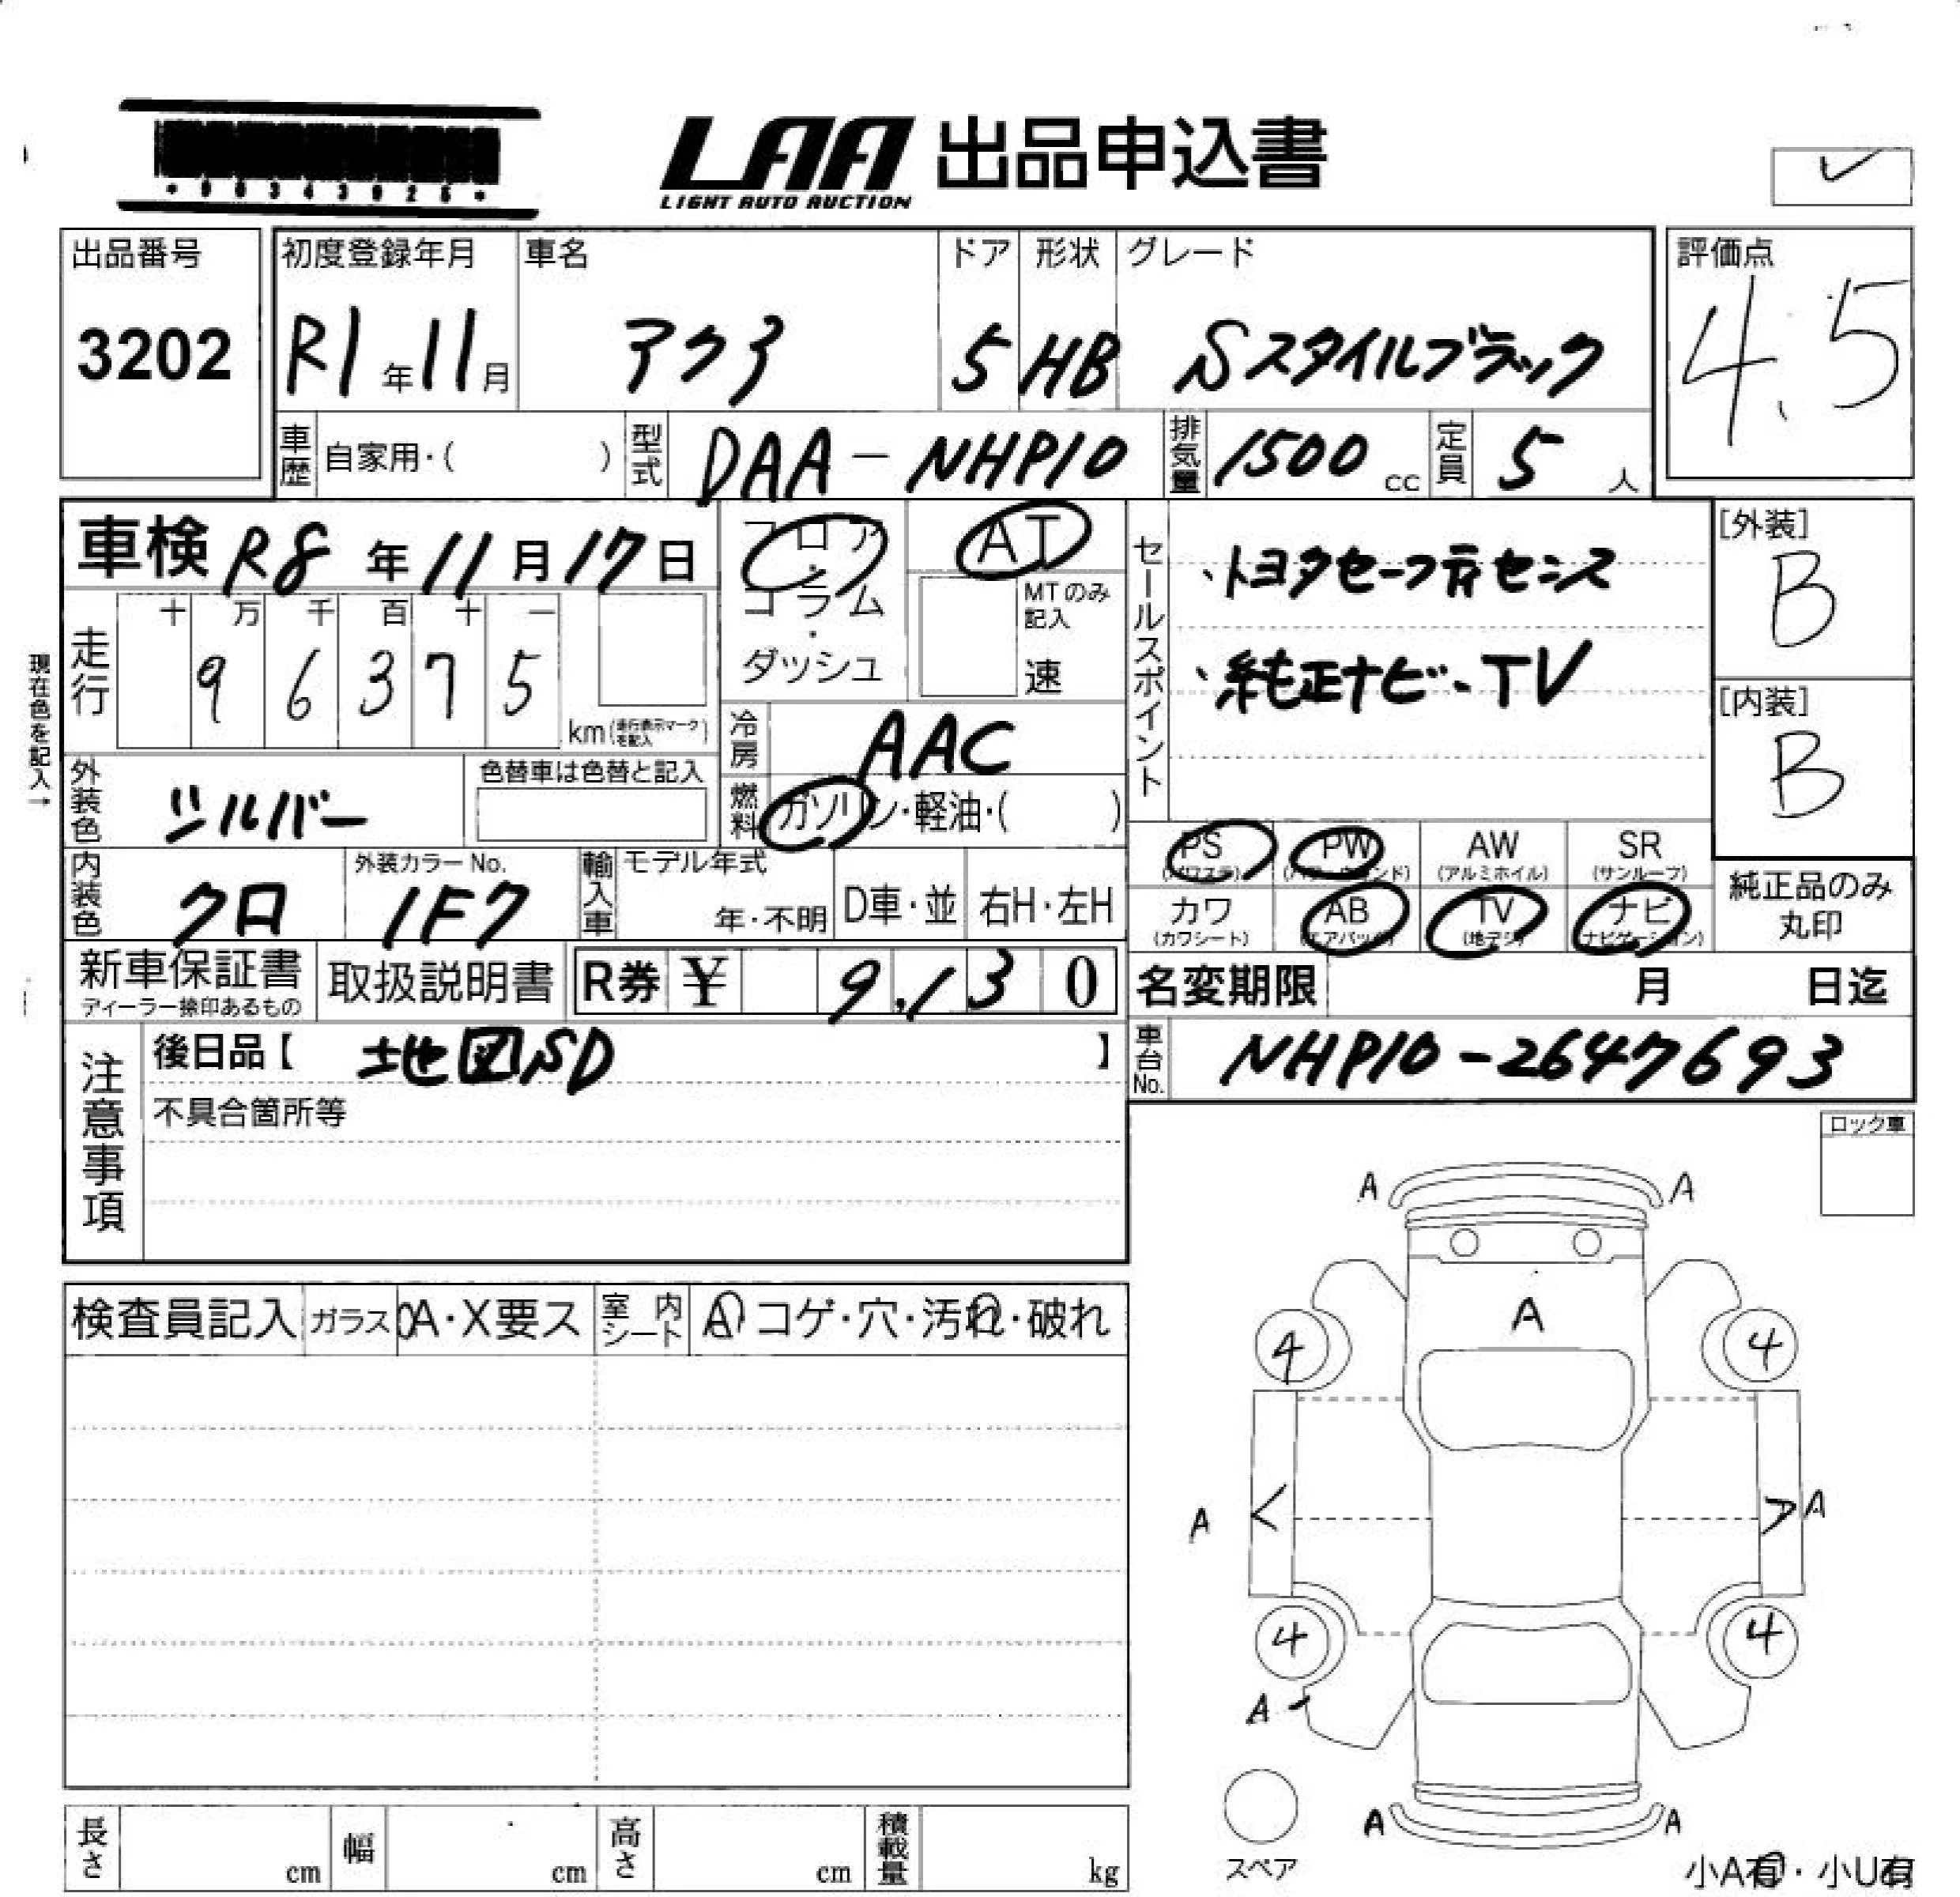 *00343025*
LAA 出品申込書
LIGHT AUTO AUCTION
出品番号
3202
初度登録年月
R1年11月
車名
アクア
ドア
5
形状
HB
グレード
Sスタイルブラック
評価点
4.5
車歴 自家用・( )
型式 DAA-NHP10
排気量 1500 cc
定員 5 人
車検 R8年11月17日
フロア・コラム・ダッシュ
AT
MTのみ記入
速
セールスポイント
・トヨタセーフティセンス
・純正ナビ・TV
[外装]
B
[内装]
B
現在色を記入→
走行
十 万 千 百 十 一
9 6 3 7 5
km(走行表示マークを記入)
冷房 AAC
燃料 ガソリン・軽油・( )
外装色 シルバー
色替車は色替と記入
内装色 クロ
外装カラーNo.
1F7
輸入車
モデル年式
年・不明
D車・並
右H・左H
PS (パワステ)
PW (パワーウインド)
AW (アルミホイル)
SR (サンルーフ)
カワ (カワシート)
AB (エアバッグ)
TV (地デジ)
ナビ (ナビゲーション)
純正品のみ丸印
新車保証書
ディーラー捺印あるもの
取扱説明書
R券 ¥ 9,130
名変期限 月 日迄
注意事項
後日品【 地図SD 】
不具合箇所等
車台No. NHP10-2647693
ロック車
検査員記入
ガラス A・X要ス
室内シート A コゲ・穴・汚れ・破れ
A A
A
4 4
A < > A
4 4
A
A A
スペア
小A有・小U有
長さ cm
幅 cm
高さ cm
積載量 kg